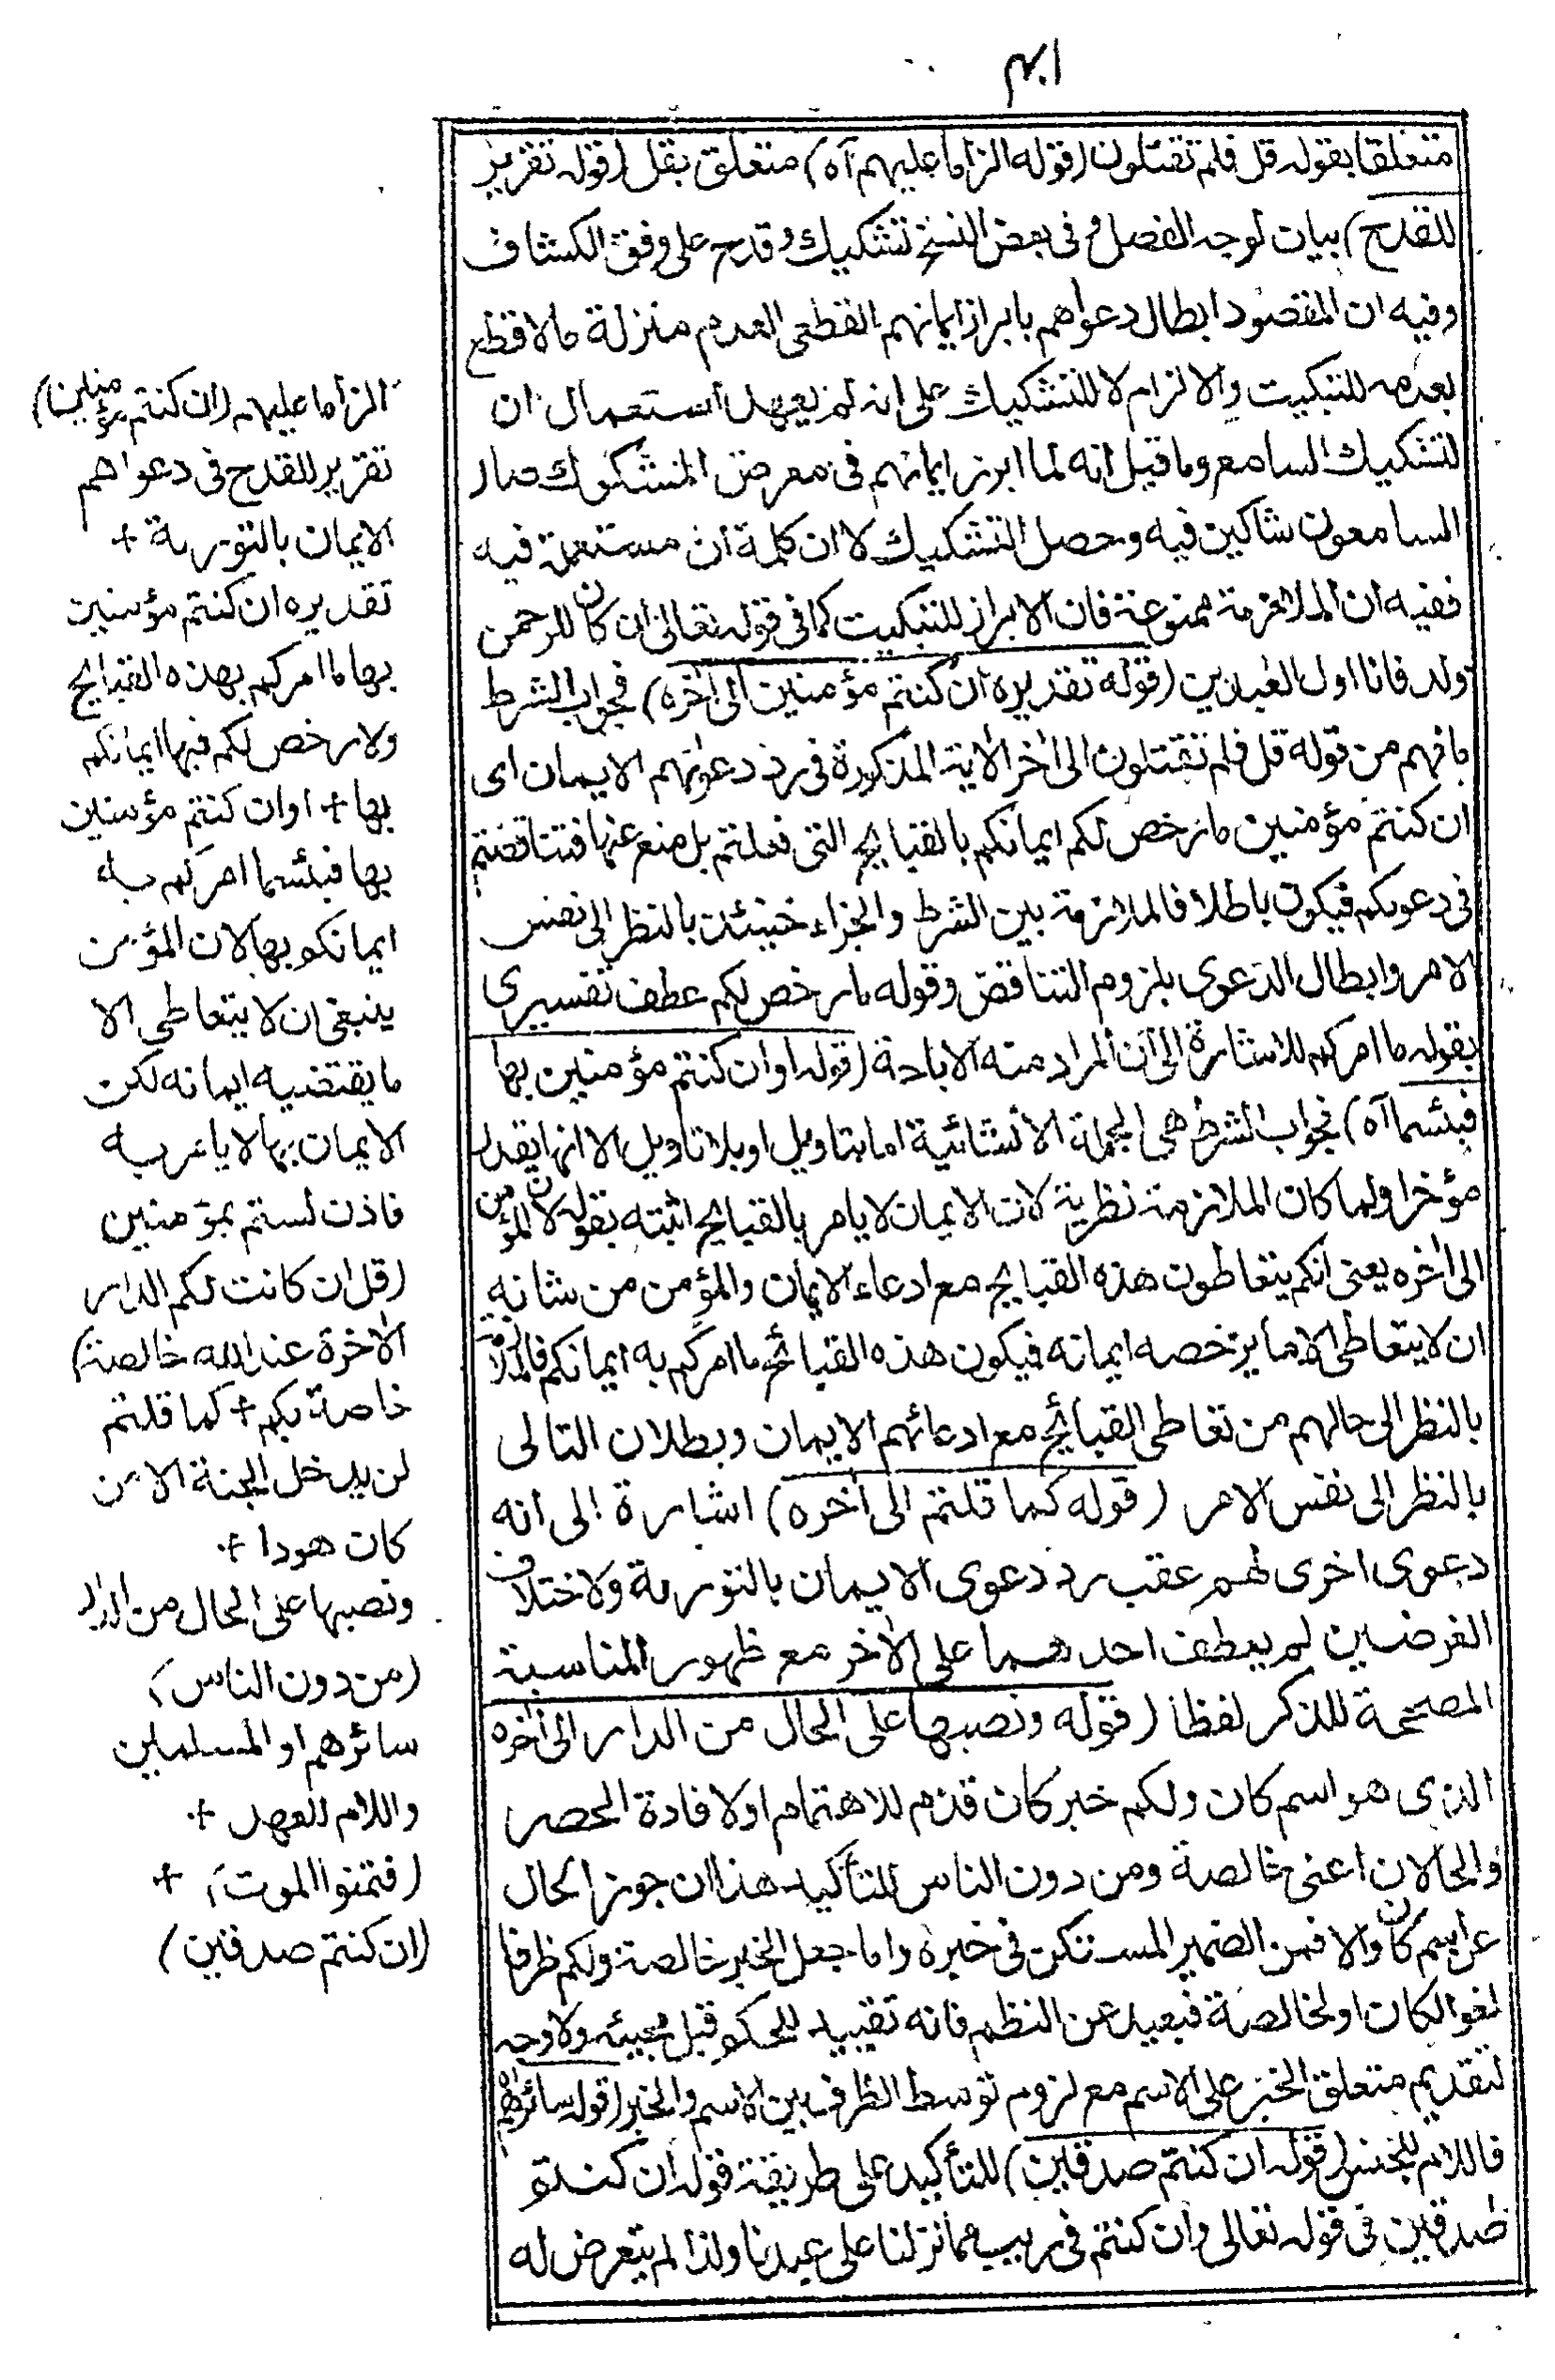 ٤٠١
متعلقا بقوله قل فلم تقتلون (قوله الزاما عليهم آه) متعلق بقل (قوله تقرير
للقدح) بيان لوجه الفصل وفى بعض النسخ تشكيك وقدح على وفق الكشاف
وفيه ان المقصود ابطال دعواهم بابراز ايمانهم القطعى العدم منزلة مالا قطع
بعدمه للتبكيت والالزام لا للتشكيك على انه لم يعهد استعمال ان
لتشكيك السامع وما قيل انه لما ابرز ايمانهم فى معرض المشكوك صار
السامعون شاكين فيه وحصل التشكيك لا ان كلمة ان مستعملة فيه
ففيه ان الملازمة ممنوعة فان الابراز للتبكيت كما فى قوله تعالى ان كان للرحمن
ولد فانا اول العبدين (قوله تقديره ان كنتم مؤمنين الى اخره) فجواب الشرط
ما فهم من قوله قل فلم تقتلون الى اخر الاية المذكورة فى رد دعوىهم الايمان اى
ان كنتم مؤمنين ما رخص لكم ايمانكم بالقبايح التى فعلتم بل منع عنها فتناقضتم
فى دعوىكم فيكون باطلا فالملازمة بين الشرط والجزاء حينئذ بالنظر الى نفس
الامر وابطال الدعوى بلزوم التناقض وقوله ما رخص لكم عطف تفسيرى
بقوله ما امركم للاشارة الى ان المراد منه الاباحة (قوله اوان كنتم مؤمنين بها
فبئسما آه) فجواب الشرط هى الجملة الانشائية اما بتاويل او بلا تاويل الا انها يقدر
مؤخرا ولما كان الملازمة نظرية لان الايمان لا يامر بالقبايح اثبته بقوله لان المؤمن
الى اخره يعنى انكم يتعاطون هذه القبايح مع ادعاء الايمان والمؤمن من شانه
ان لا يتعاطى الا ما يرخصه ايمانه فيكون هذه القبائح ما امركم به ايمانكم فالملازمة
بالنظر الى حالهم من تعاطى القبائح مع ادعائهم الايمان وبطلان التالى
بالنظر الى نفس الامر (قوله كما قلتم الى اخره) اشارة الى انه
دعوى اخرى لهم عقب رد دعوى الايمان بالتورىة ولاختلاف
الغرضين لم يعطف احدهما على الاخر مع ظهور المناسبة
المصححة للذكر لفظا (قوله ونصبها على الحال من الدار الى اخره
الذى هو اسم كان ولكم خبر كان قدم للاهتمام او لافادة الحصر
والحالان اعنى خالصة ومن دون الناس للتأكيد هذا ان جوز الحال
عن اسم كان والا فمن الضمير المستكن فى خبره واما جعل الخبر خالصة ولكم ظرفا
لغوا لكان او لخالصة فبعيد عن النظم فانه تقييد للحكم قبل مجيئه ولا وجه
لتقديم متعلق الخبر على الاسم مع لزوم توسط الظرف بين الاسم والخبر (قوله سائرهم آه)
فاللام للجنس (قوله ان كنتم صدقين) للتأكيد على طريقة قوله ان كنتم
صدقين فى قوله تعالى وان كنتم فى ريب مما نزلنا على عبدنا ولذا لم يتعرض له
الزاما عليهم (ان كنتم مؤمنين)
تقرير للقدح فى دعواهم
الايمان بالتورىة +
تقديره ان كنتم مؤمنين
بها ما امركم بهذه القبايح
ولا رخص لكم فيها ايمانكم
بها + اوان كنتم مؤمنين
بها فبئسما امركم به
ايمانكم بها لان المؤمن
ينبغى ان لا يتعاطى الا
ما يقتضيه ايمانه لكن
الايمان بها لا يامر به
فاذن لستم بمؤمنين
(قل ان كانت لكم الدار
الاخرة عند الله خالصة)
خاصة بكم + كما قلتم
لن يدخل الجنة الا من
كان هودا +
ونصبها على الحال من الدار
(من دون الناس)
سائرهم او المسلمين
واللام للعهد +
(فتمنوا الموت) +
(ان كنتم صدقين)